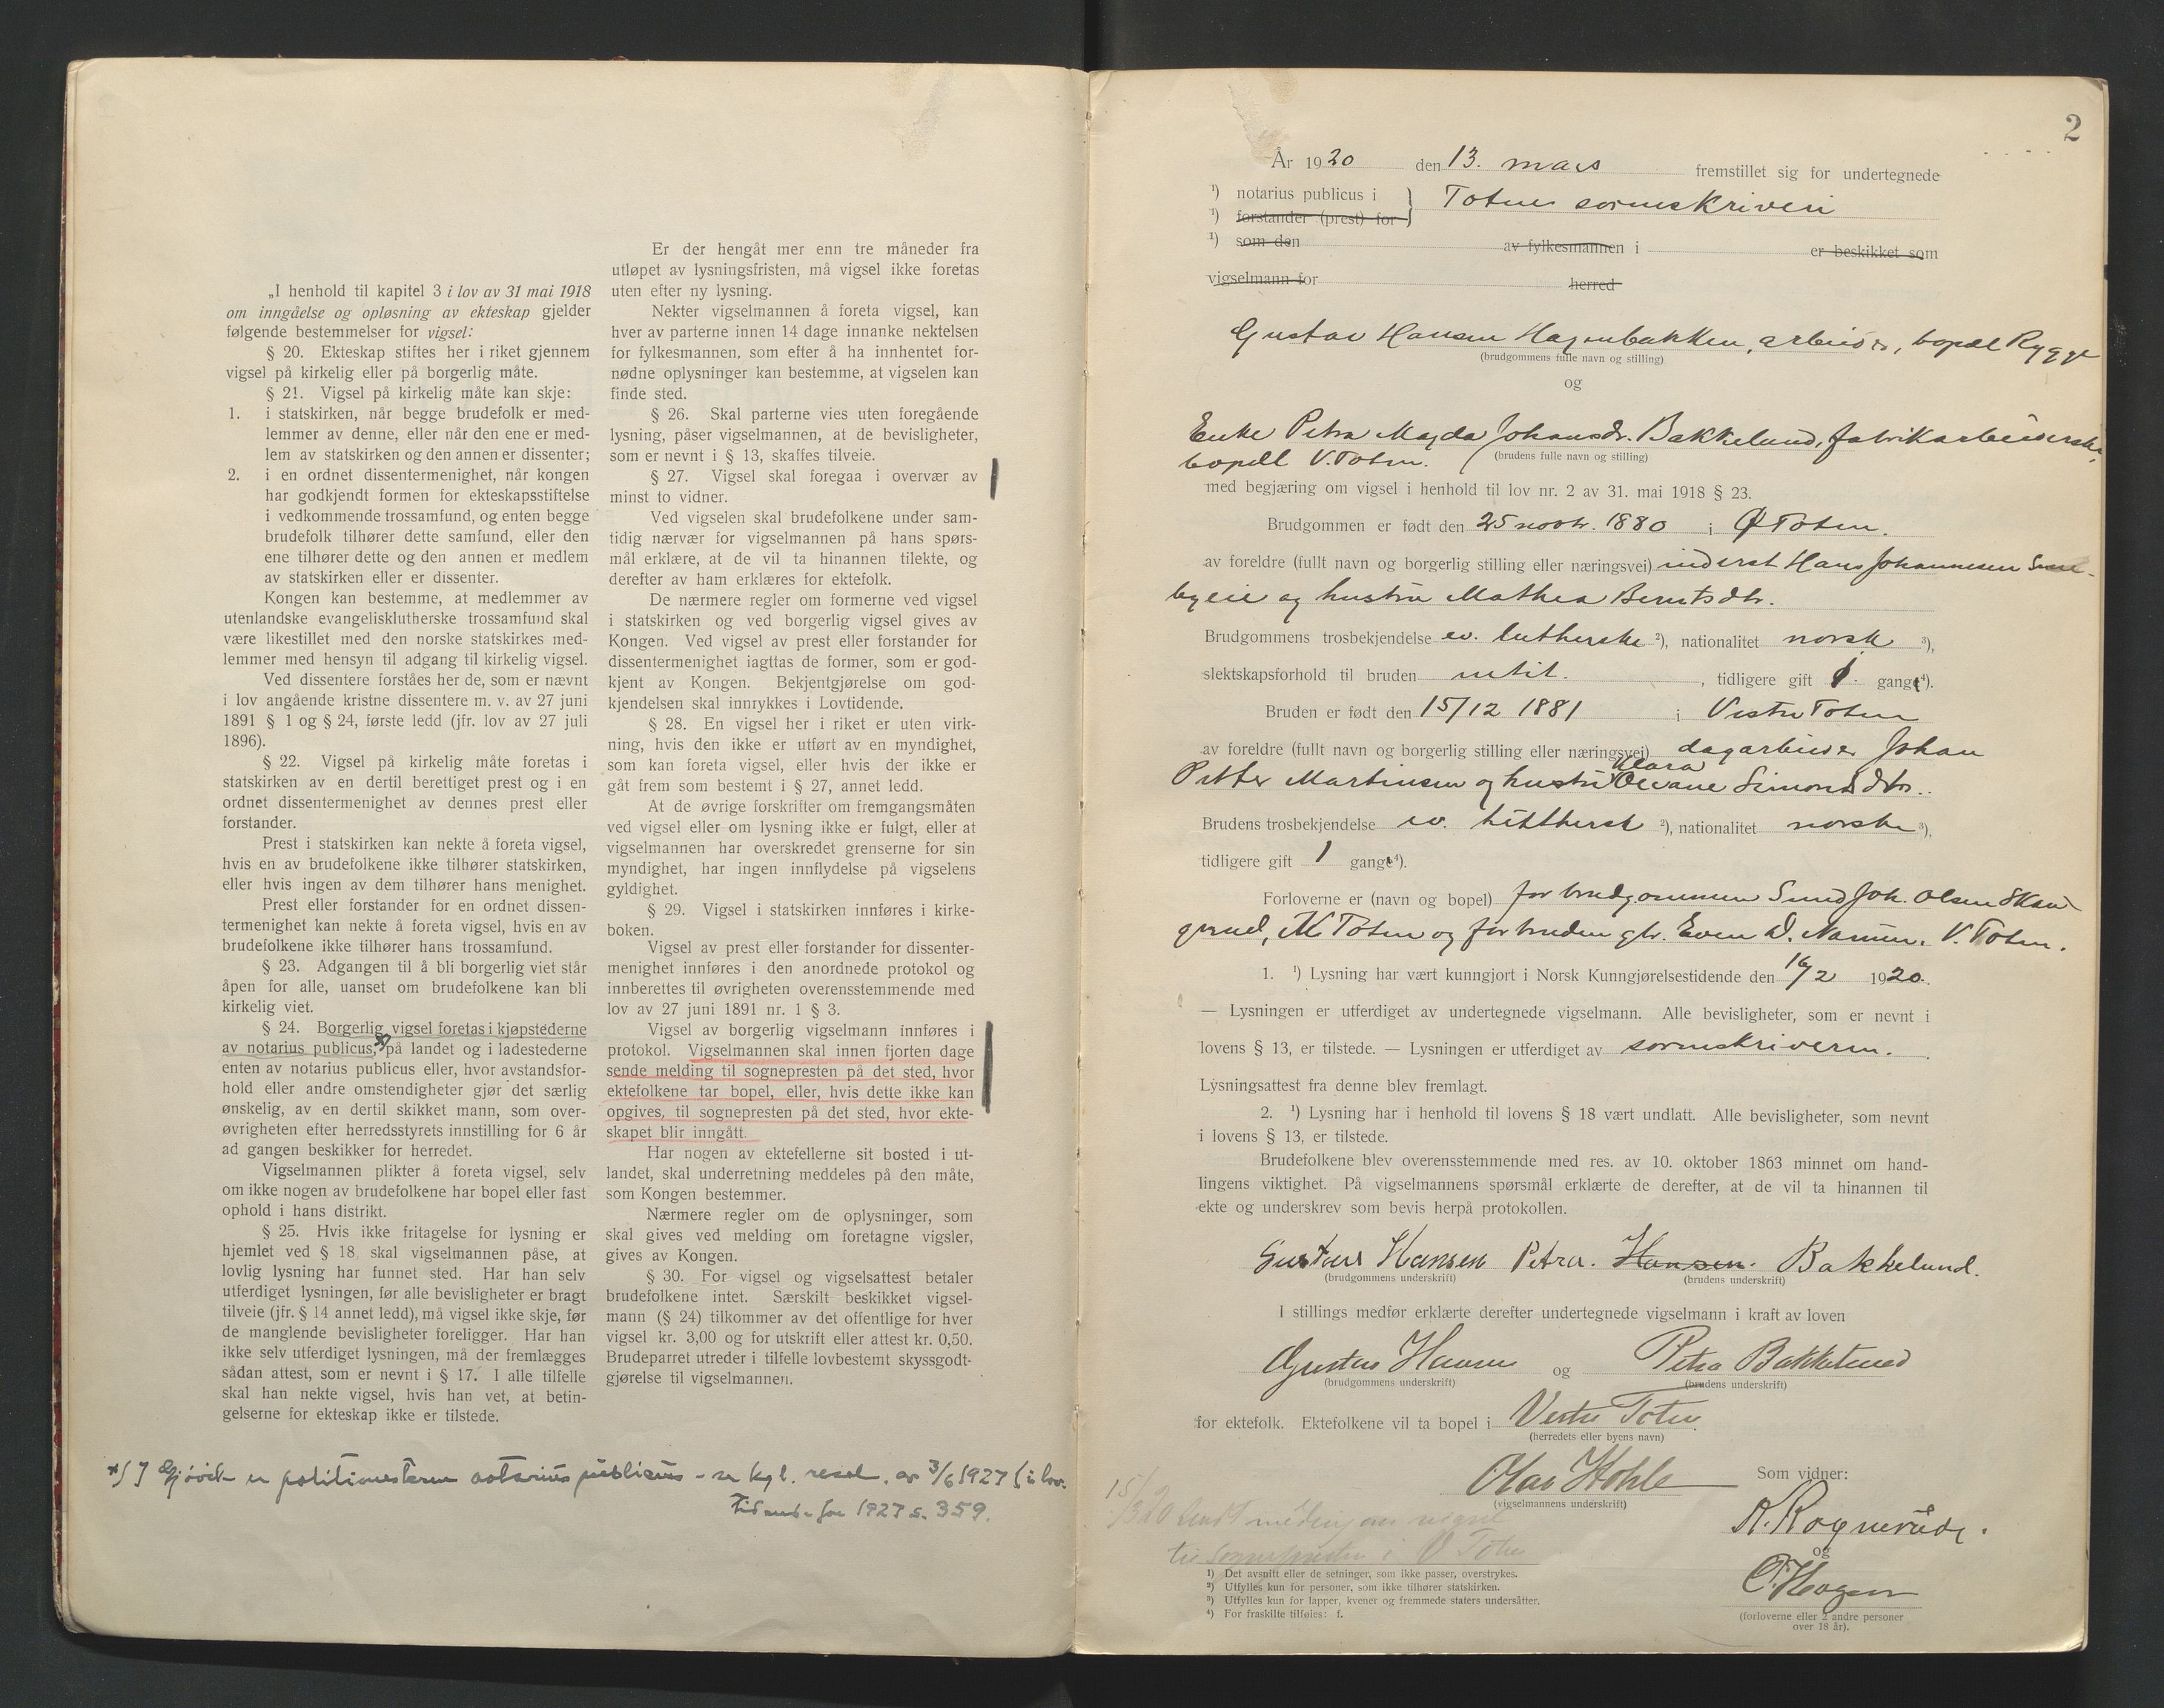 „I henhold til kapitel 3 i lov av 31 mai 1918
om inngåelse og opløsning av ekteskap gjelder
følgende bestemmelser for vigsel:
§ 20. Ekteskap stiftes her i riket gjennem
vigsel på kirkelig eller på borgerlig måte.
§ 21. Vigsel på kirkelig måte kan skje:
1. i statskirken, når begge brudefolk er med-
lemmer av denne, eller når den ene er med-
lem av statskirken og den annen er dissenter;
2. i en ordnet dissentermenighet, når kongen
har godkjendt formen for ekteskapsstiftelse
i vedkommende trossamfund, og enten begge
brudefolk tilhører dette samfund, eller den
ene tilhører dette og den annen er medlem
av statskirken eller er dissenter.
Kongen kan bestemme, at medlemmer av
utenlandske evangelisklutherske trossamfund skal
være likestillet med den norske statskirkes med-
lemmer med hensyn til adgang til kirkelig vigsel.
Ved dissentere forståes her de, som er nævnt
i lov angående kristne dissentere m. v. av 27 juni
1891 § 1 og § 24, første ledd (jfr. lov av 27 juli
1896).
§ 22. Vigsel på kirkelig måte foretas i
statskirken av en dertil berettiget prest og i en
ordnet dissentermenighet av dennes prest eller
forstander.
Prest i statskirken kan nekte å foreta vigsel,
hvis en av brudefolkene ikke tilhører statskirken,
eller hvis ingen av dem tilhører hans menighet.
Prest eller forstander for en ordnet dissen-
termenighet kan nekte å foreta vigsel, hvis en av
brudefolkene ikke tilhører hans trossamfund.
§ 23. Adgangen til å bli borgerlig viet står
åpen for alle, uanset om brudefolkene kan bli
kirkelig viet.
§ 24. Borgerlig vigsel foretas i kjøpstederne
av notarius publicus, på landet og i ladestederne
enten av notarius publicus eller, hvor avstandsfor-
hold eller andre omstendigheter gjør det særlig
ønskelig, av en dertil skikket mann, som over-
øvrigheten efter herredsstyrets innstilling for 6 år
ad gangen beskikker for herredet.
Vigselmannen plikter å foreta vigsel, selv
om ikke nogen av brudefolkene har bopel eller fast
ophold i hans distrikt.
§ 25. Hvis ikke fritagelse for lysning er
hjemlet ved § 18 skal vigselmannen påse, at
lovlig lysning har funnet sted. Har han selv
utferdiget lysningen, før alle bevisligheter er bragt
tilveie (jfr. § 14 annet ledd), må vigsel ikke skje, før
de manglende bevisligheter foreligger. Har han
ikke selv utferdiget lysningen, må der fremlægges
sådan attest, som er nevnt i § 17. I alle tilfelle
skal han nekte vigsel, hvis han vet, at betin-
gelserne for ekteskap ikke er tilstede.
Er der hengåt mer enn tre måneder fra
utløpet av lysningsfristen, må vigsel ikke foretas
uten efter ny lysning.
Nekter vigselmannen å foreta vigsel, kan
hver av parterne innen 14 dage innanke nektelsen
for fylkesmannen, som efter å ha innhentet for-
nødne oplysninger kan bestemme, at vigselen kan
finde sted.
§ 26. Skal parterne vies uten foregående
lysning, påser vigselmannen, at de bevisligheter,
som er nevnt i § 13, skaffes tilveie.
§ 27. Vigsel skal foregaa i overvær av
minst to vidner.
Ved vigselen skal brudefolkene under sam-
tidig nærvær for vigselmannen på hans spørs-
mål erklære, at de vil ta hinannen tilekte, og
derefter av ham erklæres for ektefolk.
De nærmere regler om formerne ved vigsel
i statskirken og ved borgerlig vigsel gives av
Kongen. Ved vigsel av prest eller forstander for
dissentermenighet iagttas de former, som er god-
kjent av Kongen. Bekjentgjørelse om god-
kjendelsen skal innrykkes i Lovtidende.
§ 28. En vigsel her i riket er uten virk-
ning, hvis den ikke er utført av en myndighet,
som kan foreta vigsel, eller hvis der ikke er
gåt frem som bestemt i § 27, annet ledd.
At de øvrige forskrifter om fremgangsmåten
ved vigsel eller om lysning ikke er fulgt, eller at
vigselmannen har overskredet grenserne for sin
myndighet, har ingen innflydelse på vigselens
gyldighet.
§ 29. Vigsel i statskirken innføres i kirke-
boken.
Vigsel av prest eller forstander for dissenter-
menighet innføres i den anordnede protokol og
innberettes til øvrigheten overensstemmende med
lov av 27 juni 1891 nr. 1 § 3.
Vigsel av borgerlig vigselmann innføres i
protokol. Vigselmannen skal innen fjorten dage
sende melding til sognepresten på det sted, hvor
ektefolkene tar bopel, eller, hvis dette ikke kan
opgives, til sognepresten på det sted, hvor ekte-
skapet blir inngått.
Har nogen av ektefellerne sit bosted i ut-
landet, skal underretning meddeles på den måte,
som Kongen bestemmer.
Nærmere regler om de oplysninger, som
skal gives ved melding om foretagne vigsler,
gives av Kongen.
§ 30. For vigsel og vigselsattest betaler
brudefolkene intet. Særskilt beskikket vigsel-
mann (§ 24) tilkommer av det offentlige for hver
vigsel kr. 3,00 og for utskrift eller attest kr. 0,50.
Brudeparret utreder i tilfelle lovbestemt skyssgodt-
gjørelse til vigselmannen.
*) I Gjøvik er politimesteren notarius publicus - se kgl. resol. av 3/6 1927 (i lov-
tidende for 1927 s. 359.
2
År 1920 den 13. mars fremstillet sig for undertegnede
1) notarius publicus i } Totens sorenskriveri
1) forstander (prest) for
1) som den av fylkesmannen i er beskikket som
vigselmann for herred
Gustav Hansen Hagenbakken, arbeider, bopæl Rygge
(brudgommens fulle navn og stilling)
og
Enke Petra Magda Johansdr. Bakkelund, fabrikarbeiderske,
bopæl V. Toten.
(brudens fulle navn og stilling)
med begjæring om vigsel i henhold til lov nr. 2 av 31. mai 1918 § 23.
Brudgommen er født den 25 novbr. 1880 i Ø Toten.
av foreldre (fullt navn og borgerlig stilling eller næringsvei) inderst Hans Johannesen
byeie og hustru Mathea Berntsdtr.
Brudgommens trosbekjendelse ev. lutherske 2), nationalitet norsk 3),
slektskapsforhold til bruden intet. , tidligere gift gang 4).
Bruden er født den 15/12 1881 i Vestre Toten
av foreldre (fullt navn og borgerlig stilling eller næringsvei) dagarbeider Johan
Petter Martinsen og hustru Klara Oleane Simonsdtr.
Brudens trosbekjendelse ev. luthersk 2), nationalitet norske 3),
tidligere gift 1 gang 4).
Forloverne er (navn og bopel) for brudgommen Smed Joh. Olsen
Toten og for bruden gbr. Even D. V. Toten.
1. 1) Lysning har vært kunngjort i Norsk Kunngjørelsestidende den 16/2 1920.
— Lysningen er utferdiget av undertegnede vigselmann. Alle bevisligheter, som er nevnt i
lovens § 13, er tilstede. — Lysningen er utferdiget av sorenskriveren.
Lysningsattest fra denne blev fremlagt.
2. 1) Lysning har i henhold til lovens § 18 vært undlatt. Alle bevisligheter, som nevnt
i lovens § 13, er tilstede.
Brudefolkene blev overensstemmende med res. av 10. oktober 1863 minnet om hand-
lingens viktighet. På vigselmannens spørsmål erklærte de derefter, at de vil ta hinannen til
ekte og underskrev som bevis herpå protokollen.
Gustav Hansen Petra. Hansen. Bakkelund.
(brudgommens underskrift) (brudens underskrift)
I stillings medfør erklærte derefter undertegnede vigselmann i kraft av loven
Gustav Hansen og Petra Bakkelund
(brudgommens underskrift) (brudens underskrift)
for ektefolk. Ektefolkene vil ta bopel i Vestre Toten
(herredets eller byens navn)
Som vidner:
(vigselmannens underskrift)
15/3 20 sendt melding om vigsel
til sognepresten i V Toten
og
(forloverne eller 2 andre personer
over 18 år).
1) Det avsnitt eller de setninger, som ikke passer, overstrykes.
2) Utfylles kun for personer, som ikke tilhører statskirken.
3) Utfylles kun for lapper, kvener og fremmede staters undersåtter.
4) For fraskilte tilføies: f.